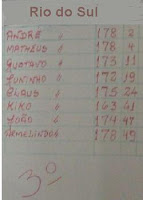 Rio do Sul
ANDRÉ " 178 2
MATHEUS " 178 4
GUSTAVO " 173 11
JUNINHO " 172 19
CLAUS " 175 24
KIKO " 163 41
JOÃO " 174 47
178 49
3º